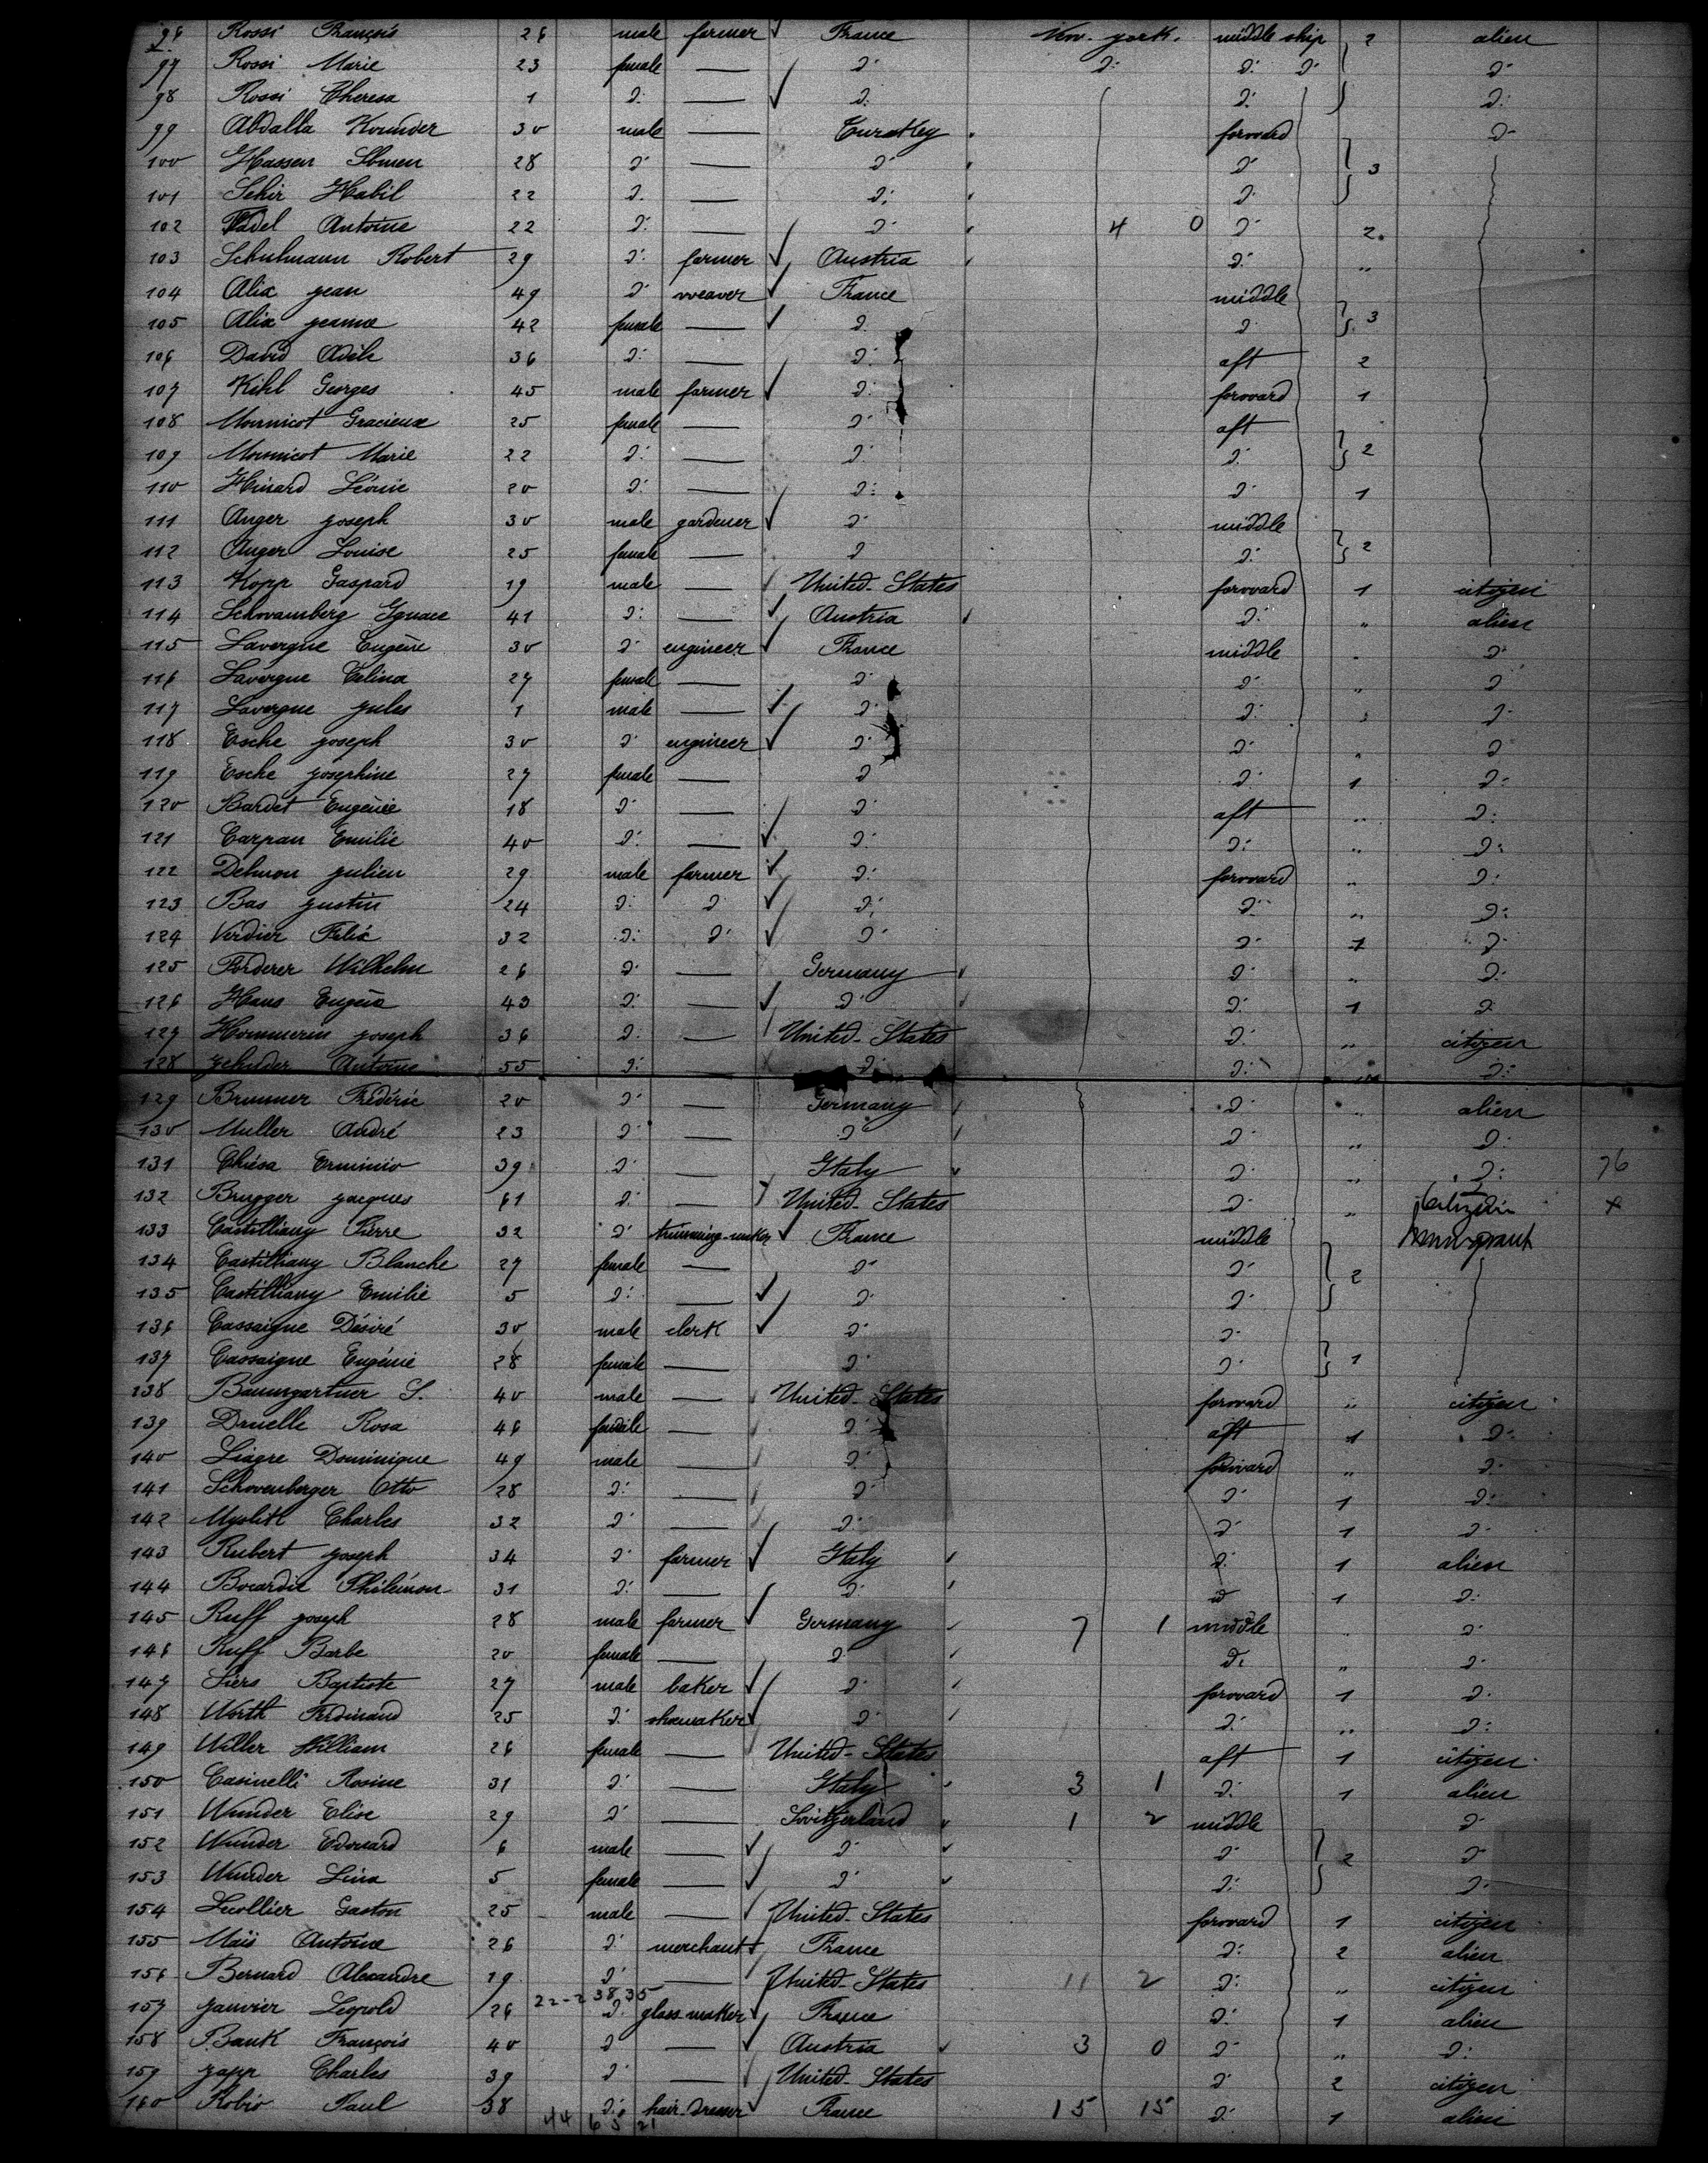 96 Rossi François 26 male farmer France New-york. middle ship 2 alien
97 Rossi Marie 23 female — d° d° d° d° d°
98 Rossi Theresa 1 d° — d° d° d°
99 Abdalla Kounder 30 male — Turckey forward d°
100 Hassen Slimen 28 d° — d° d° 3
101 Sehir Habil 22 d° — d° d°
102 Fadel Antoine 22 d° — d° 4 0 d° 2
103 Schulmann Robert 29 d° farmer Austria d° "
104 Alix jean 49 d° weaver France middle
105 Alix jeanne 42 female — d° d° 3
106 David Adèle 36 d° — d° aft 2
107 Kihl Georges 45 male farmer d° forward 1
108 Mournicot Gracieuse 25 female — d° aft
109 Mournicot Marie 22 d° — d° d° 2
110 Huiard Léonie 20 d° — d° d° 1
111 Auger joseph 30 male gardener d° middle
112 Auger Louise 25 female — d° d° 2
113 Kopp Gaspard 19 male — United-States forward 1 citizen
114 Schwamberg Ignace 41 d° — Austria d° " alien
115 Lavergne Eugène 30 d° engineer France middle " d°
116 Lavergne Célina 27 female — d° d° " d°
117 Lavergne jules 1 male — d° d° " d°
118 Esche joseph 30 d° engineer d° d° " d°
119 Esche josephine 27 female — d° d° 1 d°
120 Bardet Eugénie 18 d° — d° aft " d°
121 Carpan Emilie 40 d° — d° d° " d°
122 Delmon julien 29 male farmer d° forward " d°
123 Bas justin 24 d° d° d° d° " d°
124 Verdier Félix 32 d° d° d° d° 1 d°
125 Forderer Wilhelm 26 d° — Germany d° " d°
126 Haus Eugène 43 d° — d° d° 1 d°
127 Hommerin joseph 36 d° — United-States d° " citizen
128 Antoine 55 d° — d° d° " d°
129 Brunner Frédéric 20 d° — Germany d° " alien
130 Muller André 23 d° — d° d° " d°
131 Chiesa Erminio 39 d° — Italy d° " d° 76
132 Brugger jacques 61 d° — United-States d° " Citizen x
133 Castilliany Pierre 32 d° trimming-maker France middle
134 Castilliany Blanche 27 female — d° d° 2
135 Castilliany Emilie 5 d° — d° d°
136 Cassaigne Désiré 30 male clerk d° d°
137 Cassaigne Eugénie 28 female — d° d° 1
138 Baumgartner S. 40 male — United-States forward " citizen
139 Druelle Rosa 46 female — d° aft 1 d°
140 Liagre Dominique 49 male — d° forward " d°
141 Schovenberger Otto 28 d° — d° d° 1 d°
142 Charles 32 d° — d° d° 1 d°
143 Rubert joseph 34 d° farmer Italy d° 1 alien
144 Bocardie Philémon 31 d° — d° d° 1 d°
145 Ruff joseph 28 male farmer Germany 7 1 middle " d°
146 Ruff Barbe 20 female — d° d° " d°
147 Siers Baptiste 27 male baker d° forward 1 d°
148 Worth Ferdinand 25 d° shomaker d° d° " d°
149 Willer William 26 female — United-States aft 1 citizen
150 Casinelli Rosine 31 d° — Italy 3 1 d° 1 alien
151 Wunder Elise 29 d° — Switzerland 1 2 middle d°
152 Wunder Edouard 6 male — d° d° 2 d°
153 Wunder Lina 5 female — d° d° d°
154 Lecollier Gaston 25 male — United-States forward 1 citizen
155 Maïs Antoine 26 d° merchant France d° 2 alien
156 Bernard Alexandre 19 d° — United-States 11 2 d° " citizen
22-2 38 35
157 janvier Leopold 26 d° glass-maker France d° 1 alien
158 Bank François 40 d° — Austria 3 0 d° " d°
159 japp Charles 39 d° — United-States d° 2 citizen
160 Robio Paul 38 d° hair-dresser France 15 15 d° 1 alien
44 6 5 21